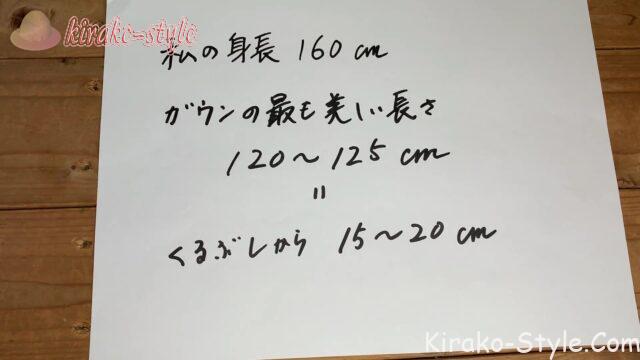 kirako-style
私の身長 160cm
ガウンの最も美しい長さ
120〜125cm
=
くるぶしから 15〜20cm
Kirako-Style.Com